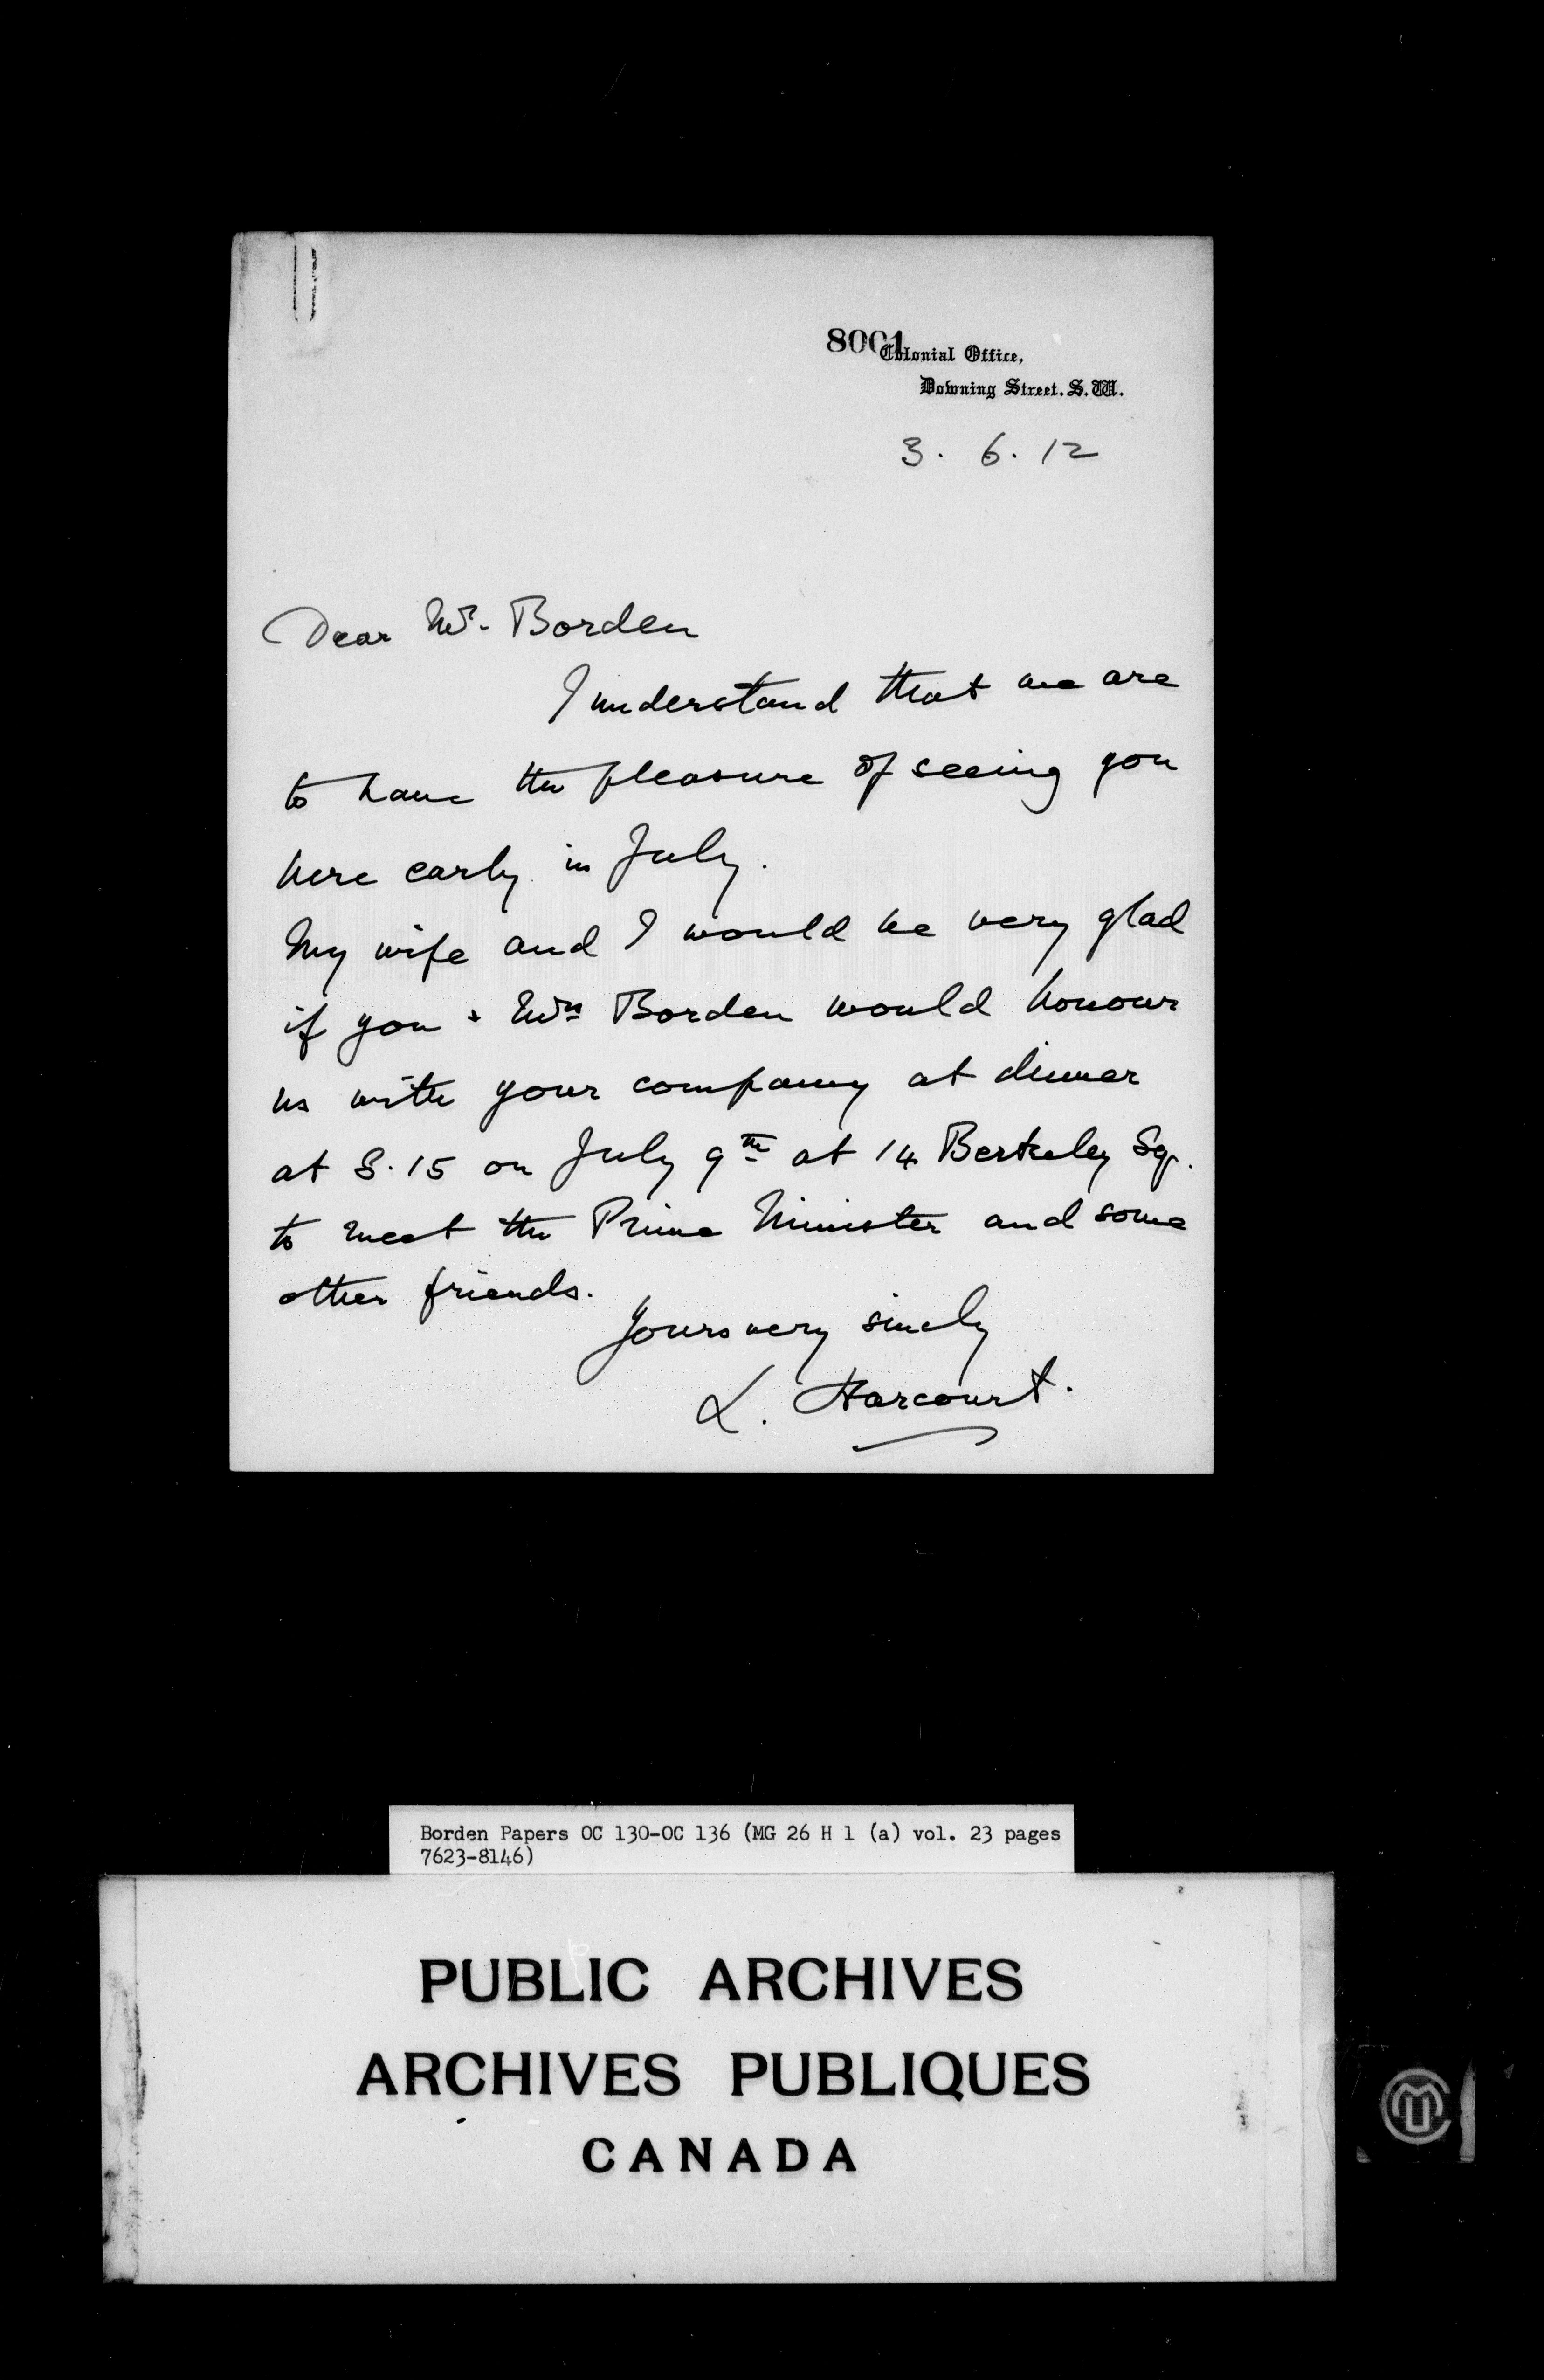 8001
Colonial Office,
Downing Street. S.W.
3. 6. 12
Dear Mr. Borden
I understand that we are
to have the pleasure of seeing you
here early in July.
My wife and I would be very glad
if you + Mrs Borden would honour
us with your company at dinner
at 8.15 on July 9th at 14 Berkeley Sq.
to meet the Prime Minister and some
other friends.
Yours very sincly
L. Harcourt.
Borden Papers OC 130-OC 136 (MG 26 H 1 (a) vol. 23 pages
7623-8146)
PUBLIC ARCHIVES
ARCHIVES PUBLIQUES
CANADA